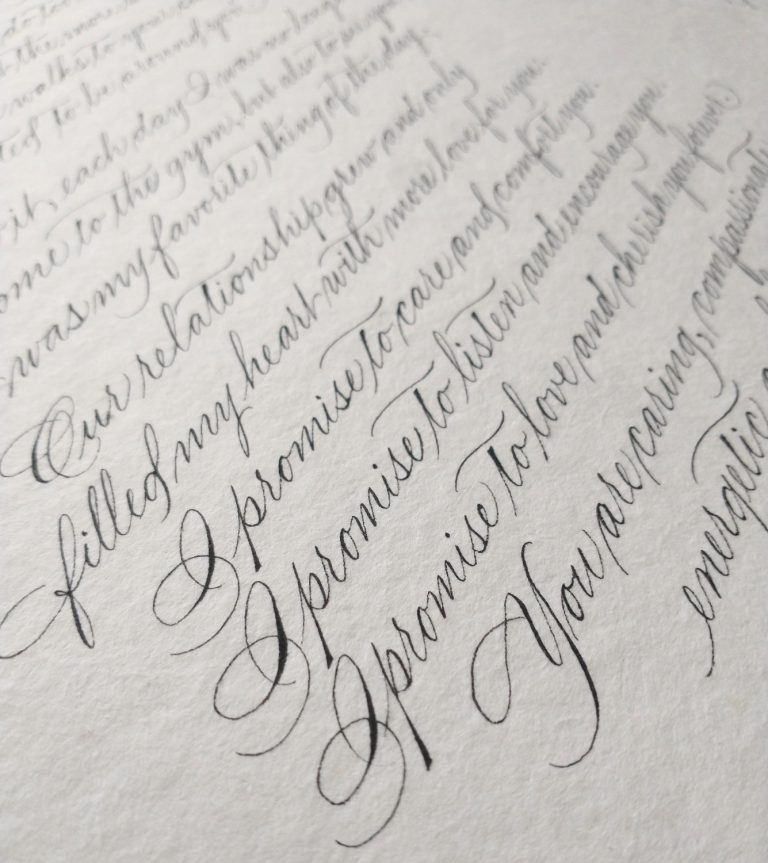 the more
walks to you
to be around you
it, each day I was no long
ome to the gym, but also to see you
was my favorite thing of the day.
Our relationship grew and only
filled my heart with more love for you.
I promise to care and comfort you.
I promise to listen and encourage you.
I promise to love and cherish you forever
You are caring, compassionate
energetic